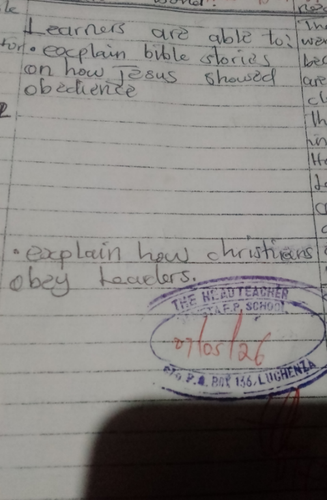 Learners are able to:
• explain bible stories
on how Jesus showed
obedience
• explain how christians
obey leaders.
THE HEADTEACHER
F.P. SCHOOL
07/05/26
P.O. BOX 136, LUCHENZA